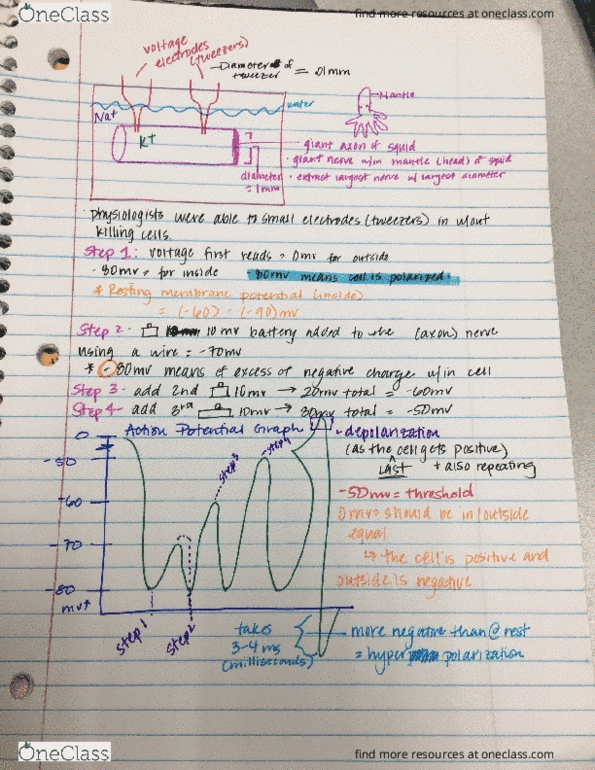 OneClass
find more resources at oneclass.com
voltage electrodes (tweezers)
Diameter of tweezer = .01mm
water
Mantle
Na+
K+
diameter = 1mm
giant axon of squid
· giant nerve w/in mantle (head) of squid
· extract largest nerve w/ largest diameter
· physiologists were able to small electrodes (tweezers) in w/out
killing cells.
Step 1: voltage first reads = 0mv for outside
-80mv = for inside 80mv means cell is polarized
* Resting membrane potential (inside)
= (-60) - (-90)mv
Step 2- 10mv battery added to the (axon) nerve
using a wire = -70mv
* -80mv means of excess of negative charge w/in cell
Step 3- add 2nd 10mv → 20mv total = -60mv
Step 4- add 3rd 10mv → 30mv total = -50mv
Action Potential Graph
0
-50
-60
-70
-80
mv+
step 1
step 2
step 3
step 4
-depolarization
(as the cell gets positive)
Last + also repeating
-50mv = threshold
0mv = should be in/outside
equal
↳ the cell is positive and
outside is negative
takes
3-4 ms
(milliseconds)
more negative than @ rest
= hyper polarization
OneClass
find more resources at oneclass.com